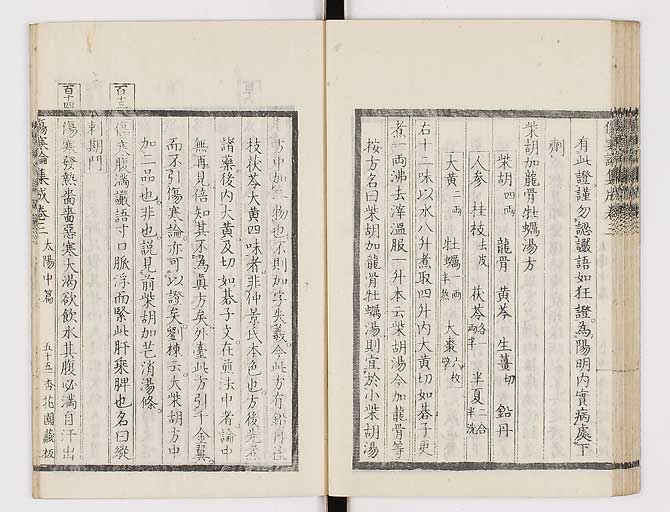 有此證謹勿認讝語如狂證為陽明内實病處下
劑
柴胡加龍骨牡蠣湯方
柴胡四兩 龍骨 黄芩 生薑切 鉛丹
人參 桂枝去皮 茯苓各一兩半 半夏二合半洗
大黄二兩 牡蠣一兩半熬 大棗六枚擘
右十二味以水八升煮取四升内大黄切如碁子更
煮一兩沸去滓溫服一升本云柴胡湯今加龍骨等
按方名曰柴胡加龍骨牡蠣湯則宜於小柴胡湯
方中加二物也不則加字失義今此方有鉛丹桂
枝茯苓大黄四味者非仲景氏本色也方後先煮
諸藥後内大黄及切如碁子文在煎法中者論中
無再見倍知其不為真方矣外臺此方引千金翼
而不引傷寒論亦可以證矣劉棟云大柴胡方中
加二品也非也說見前柴胡加芒消湯條
百十三 傷寒腹滿讝語寸口脈浮而緊此肝乘脾也名曰縱
刺期門
百十四 傷寒發熱嗇嗇惡寒大渴欲飲水其腹必滿自汗出
傷寒論集成卷三 太陽中篇 五十五 杏花園藏板